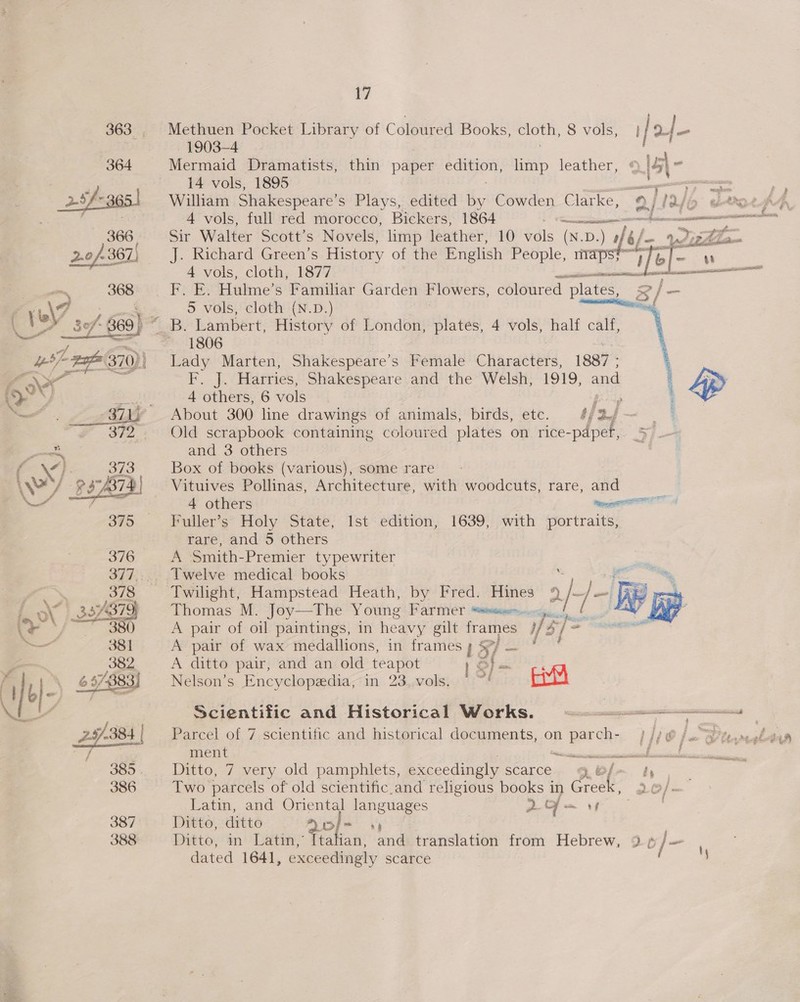 17
363 Methuen Pocket Library of Coloured Books, cloth, 8 vols, 1/2/-
1903–4
364 Mermaid Dramatists, thin paper edition, limp leather,
14 vols, 1895
25/- 365 William Shakespeare's Plays, edited by Cowden Clarke, 2/12/6
4 vols, full red morocco, Bickers, 1864
366 Sir Walter Scott's Novels, limp leather, 10 vols (N.D.)
20/- 367 J. Richard Green's History of the English People, maps
4 vols, cloth, 1877
368 F. E. Hulme's Familiar Garden Flowers, coloured plates,
5 vols, cloth (N.D.)
30/- 369 B. Lambert, History of London, plates, 4 vols, half calf,
1806
370 Lady Marten, Shakespeare's Female Characters, 1887;
F. J. Harries, Shakespeare and the Welsh, 1919, and
4 others, 6 vols
371 About 300 line drawings of animals, birds, etc.
372 Old scrapbook containing coloured plates on rice-paper, 5/-
and 3 others
373 Box of books (various), some rare
374 Vituives Pollinas, Architecture, with woodcuts, rare, and
4 others
375 Fuller's Holy State, 1st edition, 1639, with portraits,
rare, and 5 others
376 A Smith-Premier typewriter
377 Twelve medical books
378 Twilight, Hampstead Heath, by Fred. Hines
35/- 379 Thomas M. Joy—The Young Farmer
380 A pair of oil paintings, in heavy gilt frames
381 A pair of wax medallions, in frames
382 A ditto pair, and an old teapot
65/- 383 Nelson's Encyclopædia, in 23 vols.
Scientific and Historical Works.
25/- 384 Parcel of 7 scientific and historical documents, on parch-
ment
385 Ditto, 7 very old pamphlets, exceedingly scarce
386 Two parcels of old scientific and religious books in Greek, 20/-
Latin, and Oriental languages
387 Ditto, ditto 20/- "
388 Ditto, in Latin, Italian, and translation from Hebrew, 20/- "
dated 1641, exceedingly scarce